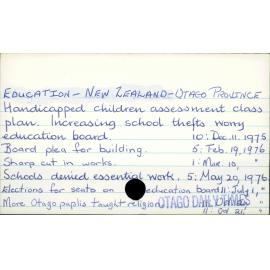 EDUCATION - NEW ZEALAND - OTAGO PROVINCE
Handicapped children assessment class
plan. Increasing school thefts worry
education board. 10: Dec. 11. 1975
Board plea for building. 5: Feb. 19, 1976
Sharp cut in works. 1: Mar. 10, "
Schools denied essential work. 5: May 20, 1976
Elections for seats on education board 11: July 1, "
More Otago pupils taught religion OTAGO DAILY TIMES
11: Oct 21. "